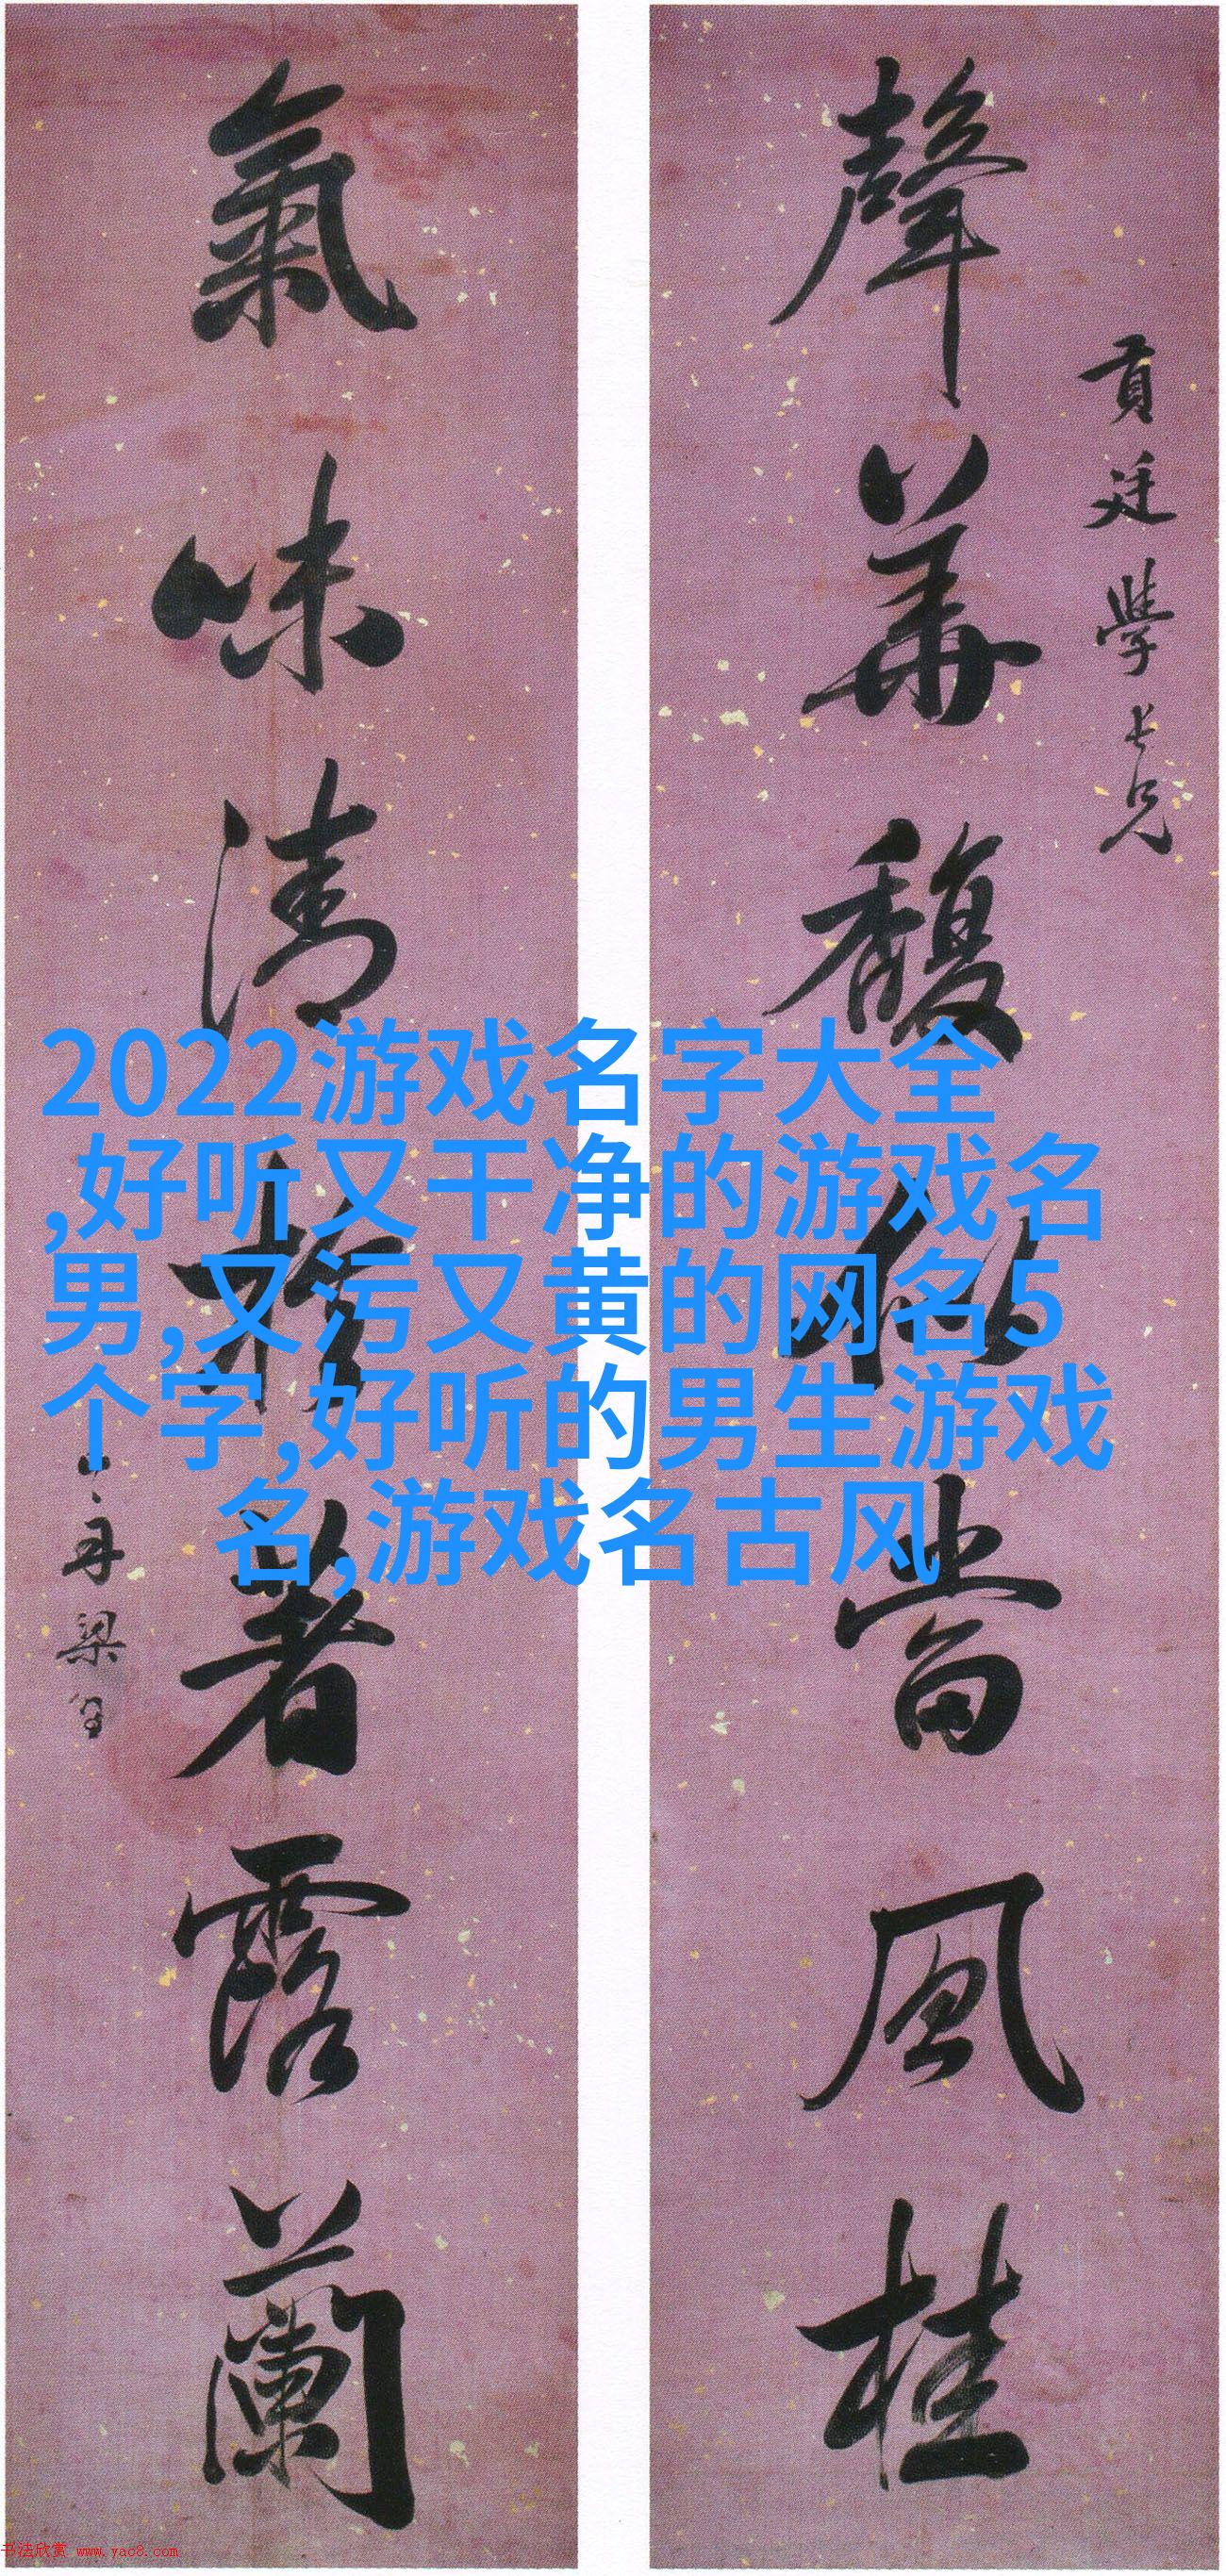 貢廷學長兄
聲華馥似當風桂
氣味清於著露蘭
山舟梁
2022游戏名字大全
,好听又干净的游戏名
男,又污又黄的网名5
个字,好听的男生游戏
名,游戏名古风
书法欣赏 www.yac8.com